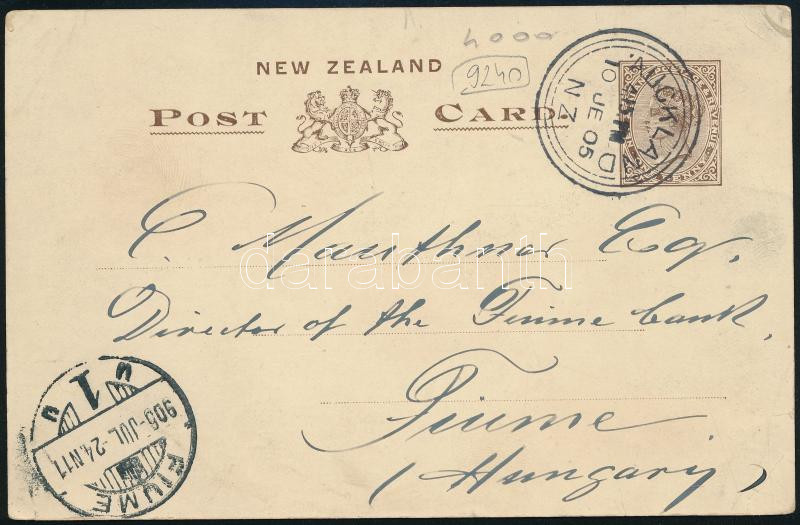 4000
9240
NEW ZEALAND
POST CARD.
AUCKLAND
10 JE 05
NZ
PENNY
C. Mauthner Esq.
Director of the Fiume bank,
Fiume
(Hungary)
FIUME
905-JUL.-24.N11
1
darabanth